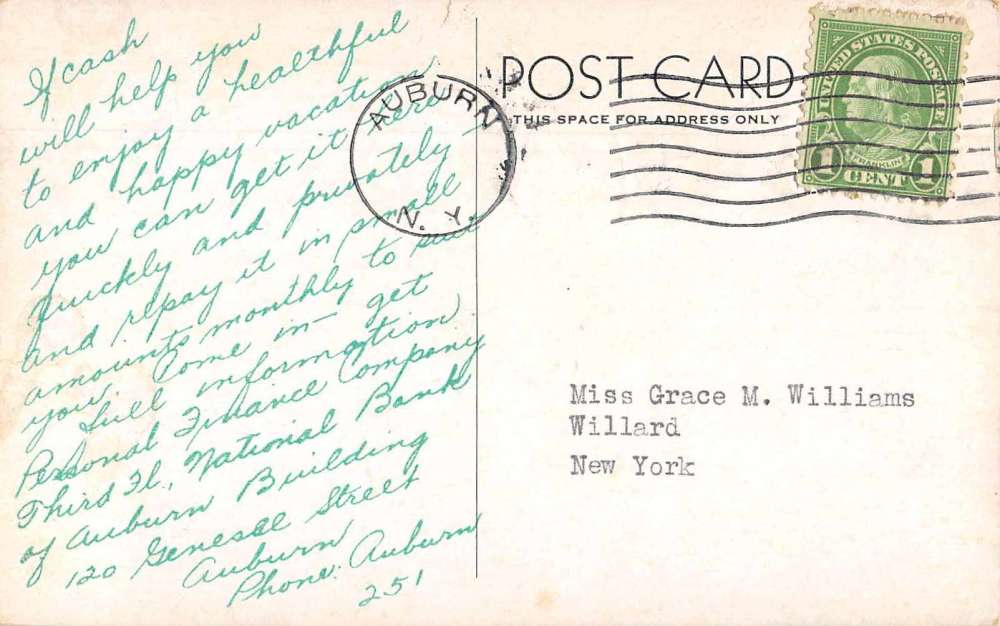 If cash
will help you
to enjoy a healthful
and happy vacation
you can get it here
quickly and privately
and repay it in small
amounts monthly to suit
you. Come in - get
full information.
Personal Finance Company
Third Fl., National Bank
of Auburn Building
120 Genesee Street
Auburn
Phone: Auburn
251
AUBURN
N. Y.
POST CARD
THIS SPACE FOR ADDRESS ONLY
UNITED STATES POSTAGE
FRANKLIN
1 CENT 1
Miss Grace M. Williams
Willard
New York